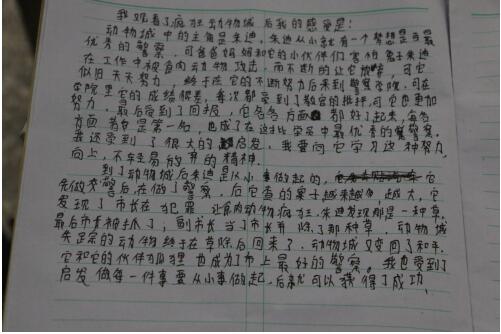 我观看了疯狂动物城后我的感受是:
动物城中的主角是朱迪,朱迪从小就有一个梦想是当最
优秀的警察,可爸爸妈妈和它的小伙伴们害怕兔子朱迪
在工作中被食肉动物攻击,而不断的让它放弃,可它
似旧天天努力,终于在它的不断努力后来到警察学院,可在
学院里它的成绩很差,每次都受到了教官的批评,可它也更加
努力,最后受到了回报,它各各方面都好了起来,每各
方面都是第一名,也成了在这比学员中最优秀的警察。
我还受到了很大的启发,我要向它学习这种努力
向上,不轻易放弃的精神。
到了动物城后朱迪是从小事做起的,它
先做交警后在做了警察,后它查的案子越来越多,越大,它
发现了市长在犯罪,让食肉动物疯狂,朱迪发现那是一种草,
最后市长被抓了;副市长当了市长弃除了那种草,动物城
失踪的动物终于在草除后回来了,动物城又变回了和平,
它和它的伙伴狐狸也成为了市上最好的警察。我也受到了
启发做每一件事要从小事做起,后来就可以获得了成功,